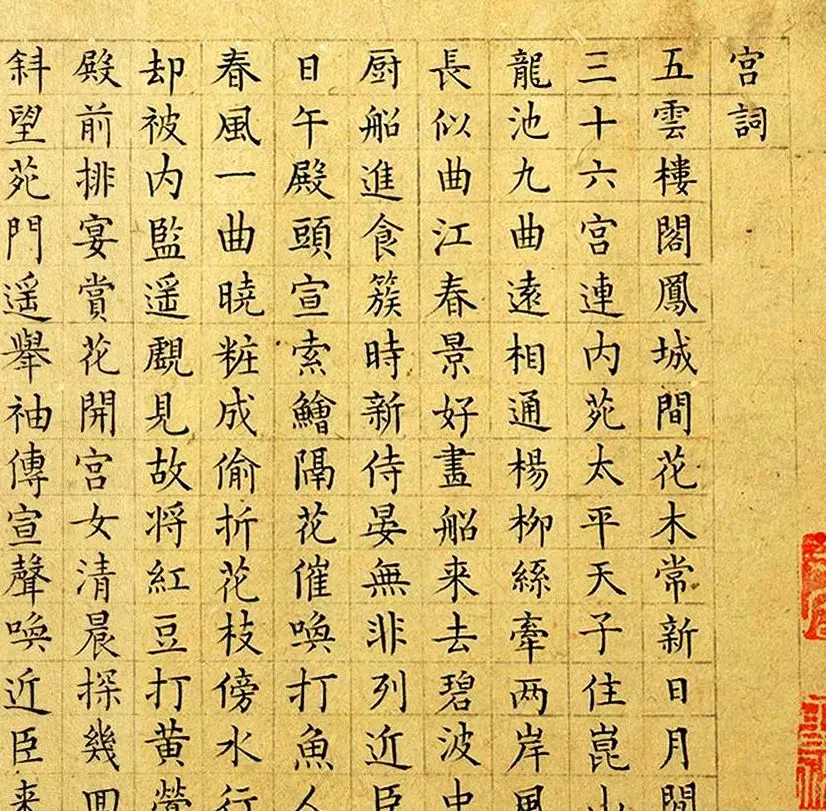 宫詞
五雲樓閣鳳城間花木常新日月
三十六宫連内苑太平天子住崑山
龍池九曲遠相通楊柳絲牽两岸風
長似曲江春景好畫船来去碧波中
厨船進食簇時新侍晏無非列近臣
日午殿頭宣索鱠隔花催喚打魚人
春風一曲曉粧成偷折花枝傍水行
却被内監遥覷見故将紅豆打黄鶯
殿前排宴賞花開宫女清晨探幾回
斜望苑門遥舉袖傳宣聲喚近臣来